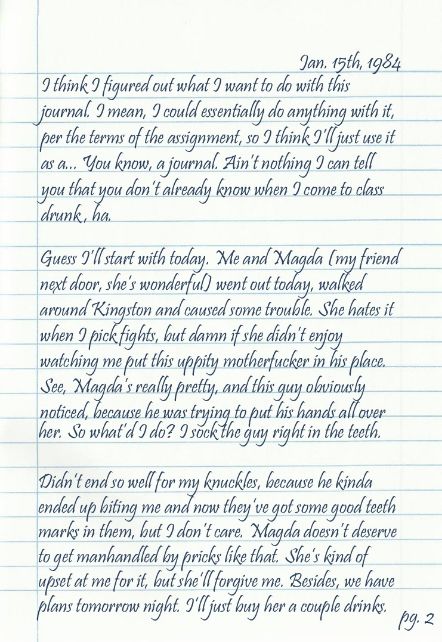 Jan. 15th, 1984
I think I figured out what I want to do with this
journal. I mean, I could essentially do anything with it,
per the terms of the assignment, so I think I'll just use it
as a... You know, a journal. Ain't nothing I can tell
you that you don't already know when I come to class
drunk, ha.
Guess I'll start with today. Me and Magda (my friend
next door, she's wonderful) went out today, walked
around Kingston and caused some trouble. She hates it
when I pick fights, but damn if she didn't enjoy
watching me put this uppity motherfucker in his place.
See, Magda's really pretty, and this guy obviously
noticed, because he was trying to put his hands all over
her. So what'd I do? I sock the guy right in the teeth.
Didn't end so well for my knuckles, because he kinda
ended up biting me and now they've got some good teeth
marks in them, but I don't care. Magda doesn't deserve
to get manhandled by pricks like that. She's kind of
upset at me for it, but she'll forgive me. Besides, we have
plans tomorrow night. I'll just buy her a couple drinks.
pg. 2